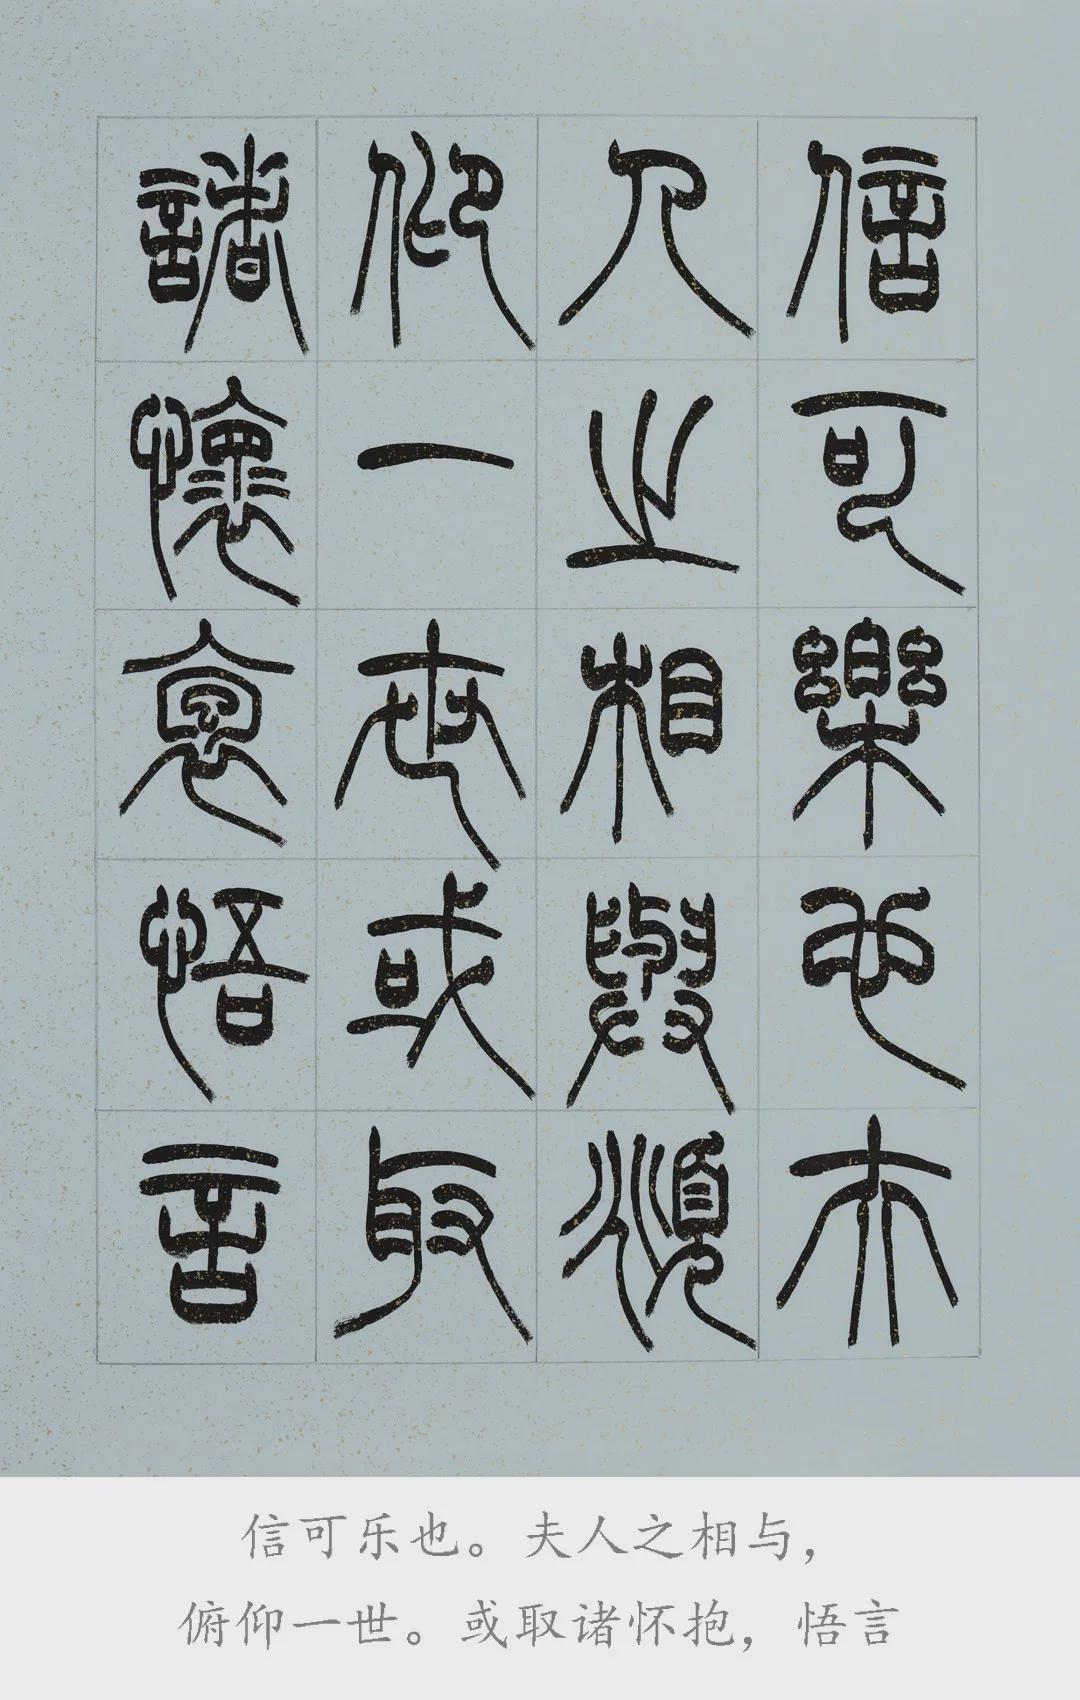 信可樂也夫
人之相與頫
仰一世或取
諸懷袌悟言
信可乐也。夫人之相与，
俯仰一世。或取诸怀抱，悟言